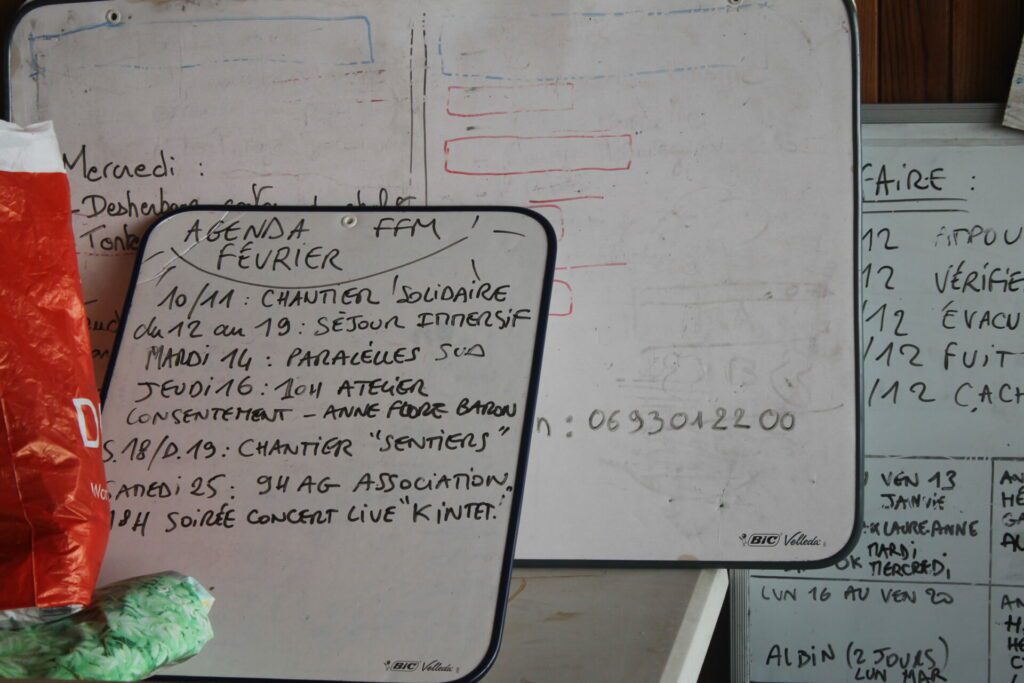 Mercredi :
- Desherber
AGENDA FFM
FÉVRIER
10/11 : CHANTIER SOLIDAIRE
du 12 au 19 : SÉJOUR IMMERSIF
MARDI 14 : PARALÉLLES SUD
JEUDI 16 : 10H ATELIER
CONSENTEMENT - ANNE FLORE BARON
S.18/D.19 : CHANTIER "SENTIERS"
SAMEDI 25 : 9H AG ASSOCIATION
18H SOIRÉE CONCERT LIVE "KINTET"
BIC Velleda
n : 0693012200
BIC Velleda
FAIRE :
12
12 VÉRIFIE
/12 ÉVACU
/12 FUIT
/12 CACH
VEN 13
JANVIE
LAURE-ANNE
MARDI
OK MERCREDI
LUN 16 AU VEN 20
ALBIN (2 JOURS)
LUN MAR
AN
HÉ
GA
AL
AN
H
HE
C
D